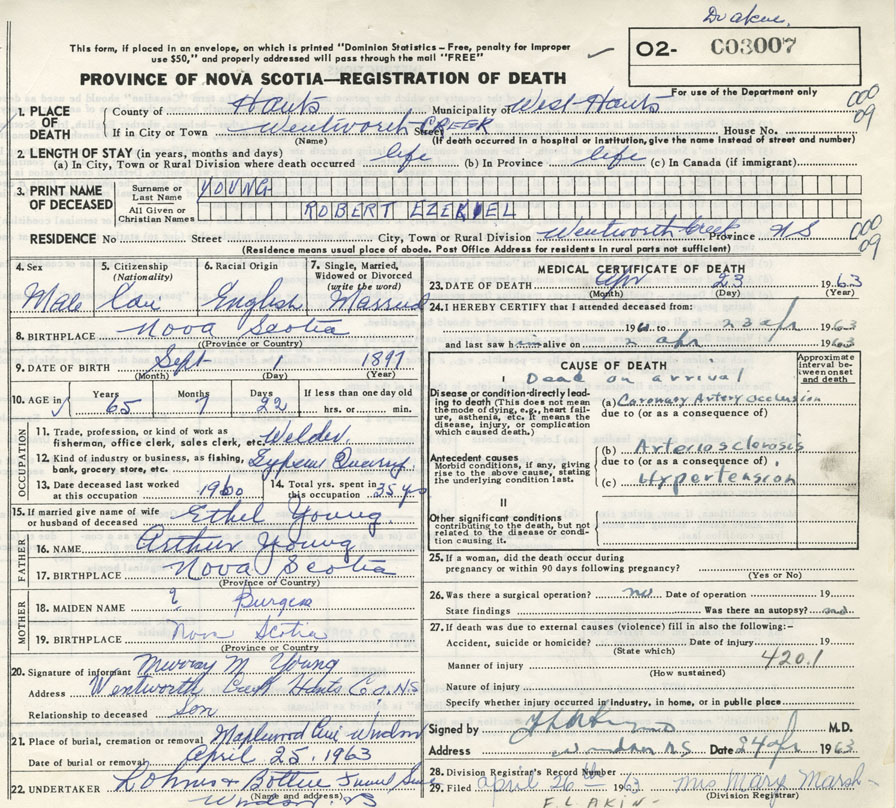 Drakne.
This form, if placed in an envelope, on which is printed "Dominion Statistics – Free, penalty for Improper
use $50," and properly addressed will pass through the mail "FREE"
O2- C03007
PROVINCE OF NOVA SCOTIA—REGISTRATION OF DEATH
For use of the Department only
1. PLACE OF DEATH County of Hants Municipality of West Hants 000
If in City or Town Wentworth CREEK Street House No. 09
(Name) (If death occurred in a hospital or institution, give the name instead of street and number)
2. LENGTH OF STAY (in years, months and days)
(a) In City, Town or Rural Division where death occurred life (b) In Province life (c) In Canada (if immigrant)
3. PRINT NAME OF DECEASED Surname or Last Name YOUNG
All Given or Christian Names ROBERT EZEKIEL
RESIDENCE No Street City, Town or Rural Division Wentworth Creek Province NS 000 09
(Residence means usual place of abode. Post Office Address for residents in rural parts not sufficient)
4. Sex 5. Citizenship (Nationality) 6. Racial Origin 7. Single, Married, Widowed or Divorced (write the word)
Male Can English Married
8. BIRTHPLACE Nova Scotia
(Province or Country)
9. DATE OF BIRTH Sept 1 1897
(Month) (Day) (Year)
10. AGE in Years Months Days If less than one day old
65 7 22 hrs. or min.
OCCUPATION
11. Trade, profession, or kind of work as fisherman, office clerk, sales clerk, etc. Welder
12. Kind of industry or business, as fishing, bank, grocery store, etc. Gypsum Quarry
13. Date deceased last worked at this occupation 1960 14. Total yrs. spent in this occupation 35 yrs
15. If married give name of wife or husband of deceased Ethel Young
FATHER
16. NAME Arthur Young
17. BIRTHPLACE Nova Scotia
(Province or Country)
MOTHER
18. MAIDEN NAME ? Burgess
19. BIRTHPLACE Nova Scotia
(Province or Country)
20. Signature of informant Murray M Young
Address Wentworth Creek Hants Co. N.S
Relationship to deceased Son
21. Place of burial, cremation or removal Maplewood Cem Windsor
Date of burial or removal April 25, 1963
22. UNDERTAKER Lohnes & Bottie Funeral
(Name and address)
Windsor NS
MEDICAL CERTIFICATE OF DEATH
23. DATE OF DEATH Apr 23 1963
(Month) (Day) (Year)
24. I HEREBY CERTIFY that I attended deceased from:
1961 to 23 apr 1963
and last saw him alive on 2 apr 1963
CAUSE OF DEATH Approximate interval between onset and death
I Dead on arrival
Disease or condition directly leading to death (This does not mean the mode of dying, e.g., heart failure, asthenia, etc. It means the disease, injury, or complication which caused death.)
(a) Coronary Artery occlusion
due to (or as a consequence of)
Antecedent causes
Morbid conditions, if any, giving rise to the above cause, stating the underlying condition last.
(b) Arteriosclerosis
due to (or as a consequence of)
(c) Hypertension
II
Other significant conditions
contributing to the death, but not related to the disease or condition causing it.
25. If a woman, did the death occur during pregnancy or within 90 days following pregnancy?
(Yes or No)
26. Was there a surgical operation? no Date of operation 19
State findings Was there an autopsy? no
27. If death was due to external causes (violence) fill in also the following:-
Accident, suicide or homicide? Date of injury 19
(State which)
Manner of injury 420.1
(How sustained)
Nature of injury
Specify whether injury occurred in industry, in home, or in public place
Signed by M.D.
Address Windsor N.S. Date 24 apr 1963
28. Division Registrar's Record Number
29. Filed April 26th 1963 Mrs Mary Marsh
(Division Registrar)
F. L. AKIN-